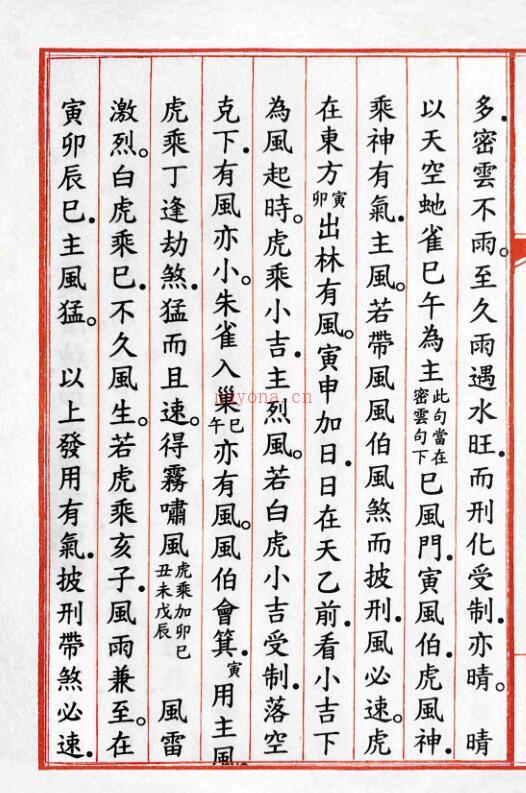 多．密雲不雨。至久雨遇水旺．而刑化受制．亦晴。　晴
以天空虵雀巳午為主此句當在密雲句下巳風門．寅風伯．虎風神．
乘神有氣．主風。若帶風風伯風煞而披刑．風必速。虎
在東方寅卯出林有風。寅申加日．日在天乙前．看小吉下
為風起時。虎乘小吉．主烈風。若白虎小吉受制．落空
克下．有風亦小。朱雀入巢巳午亦有風。風伯會箕．寅用主風
虎乘丁逢劫煞．猛而且速。得霧嘯風虎乘加卯巳丑未戊辰　風雷
激烈。白虎乘巳．不久風生。若虎乘亥子．風雨兼至。在
寅卯辰巳．主風猛。　以上發用有氣．披刑帶煞必速．
nayona.cn